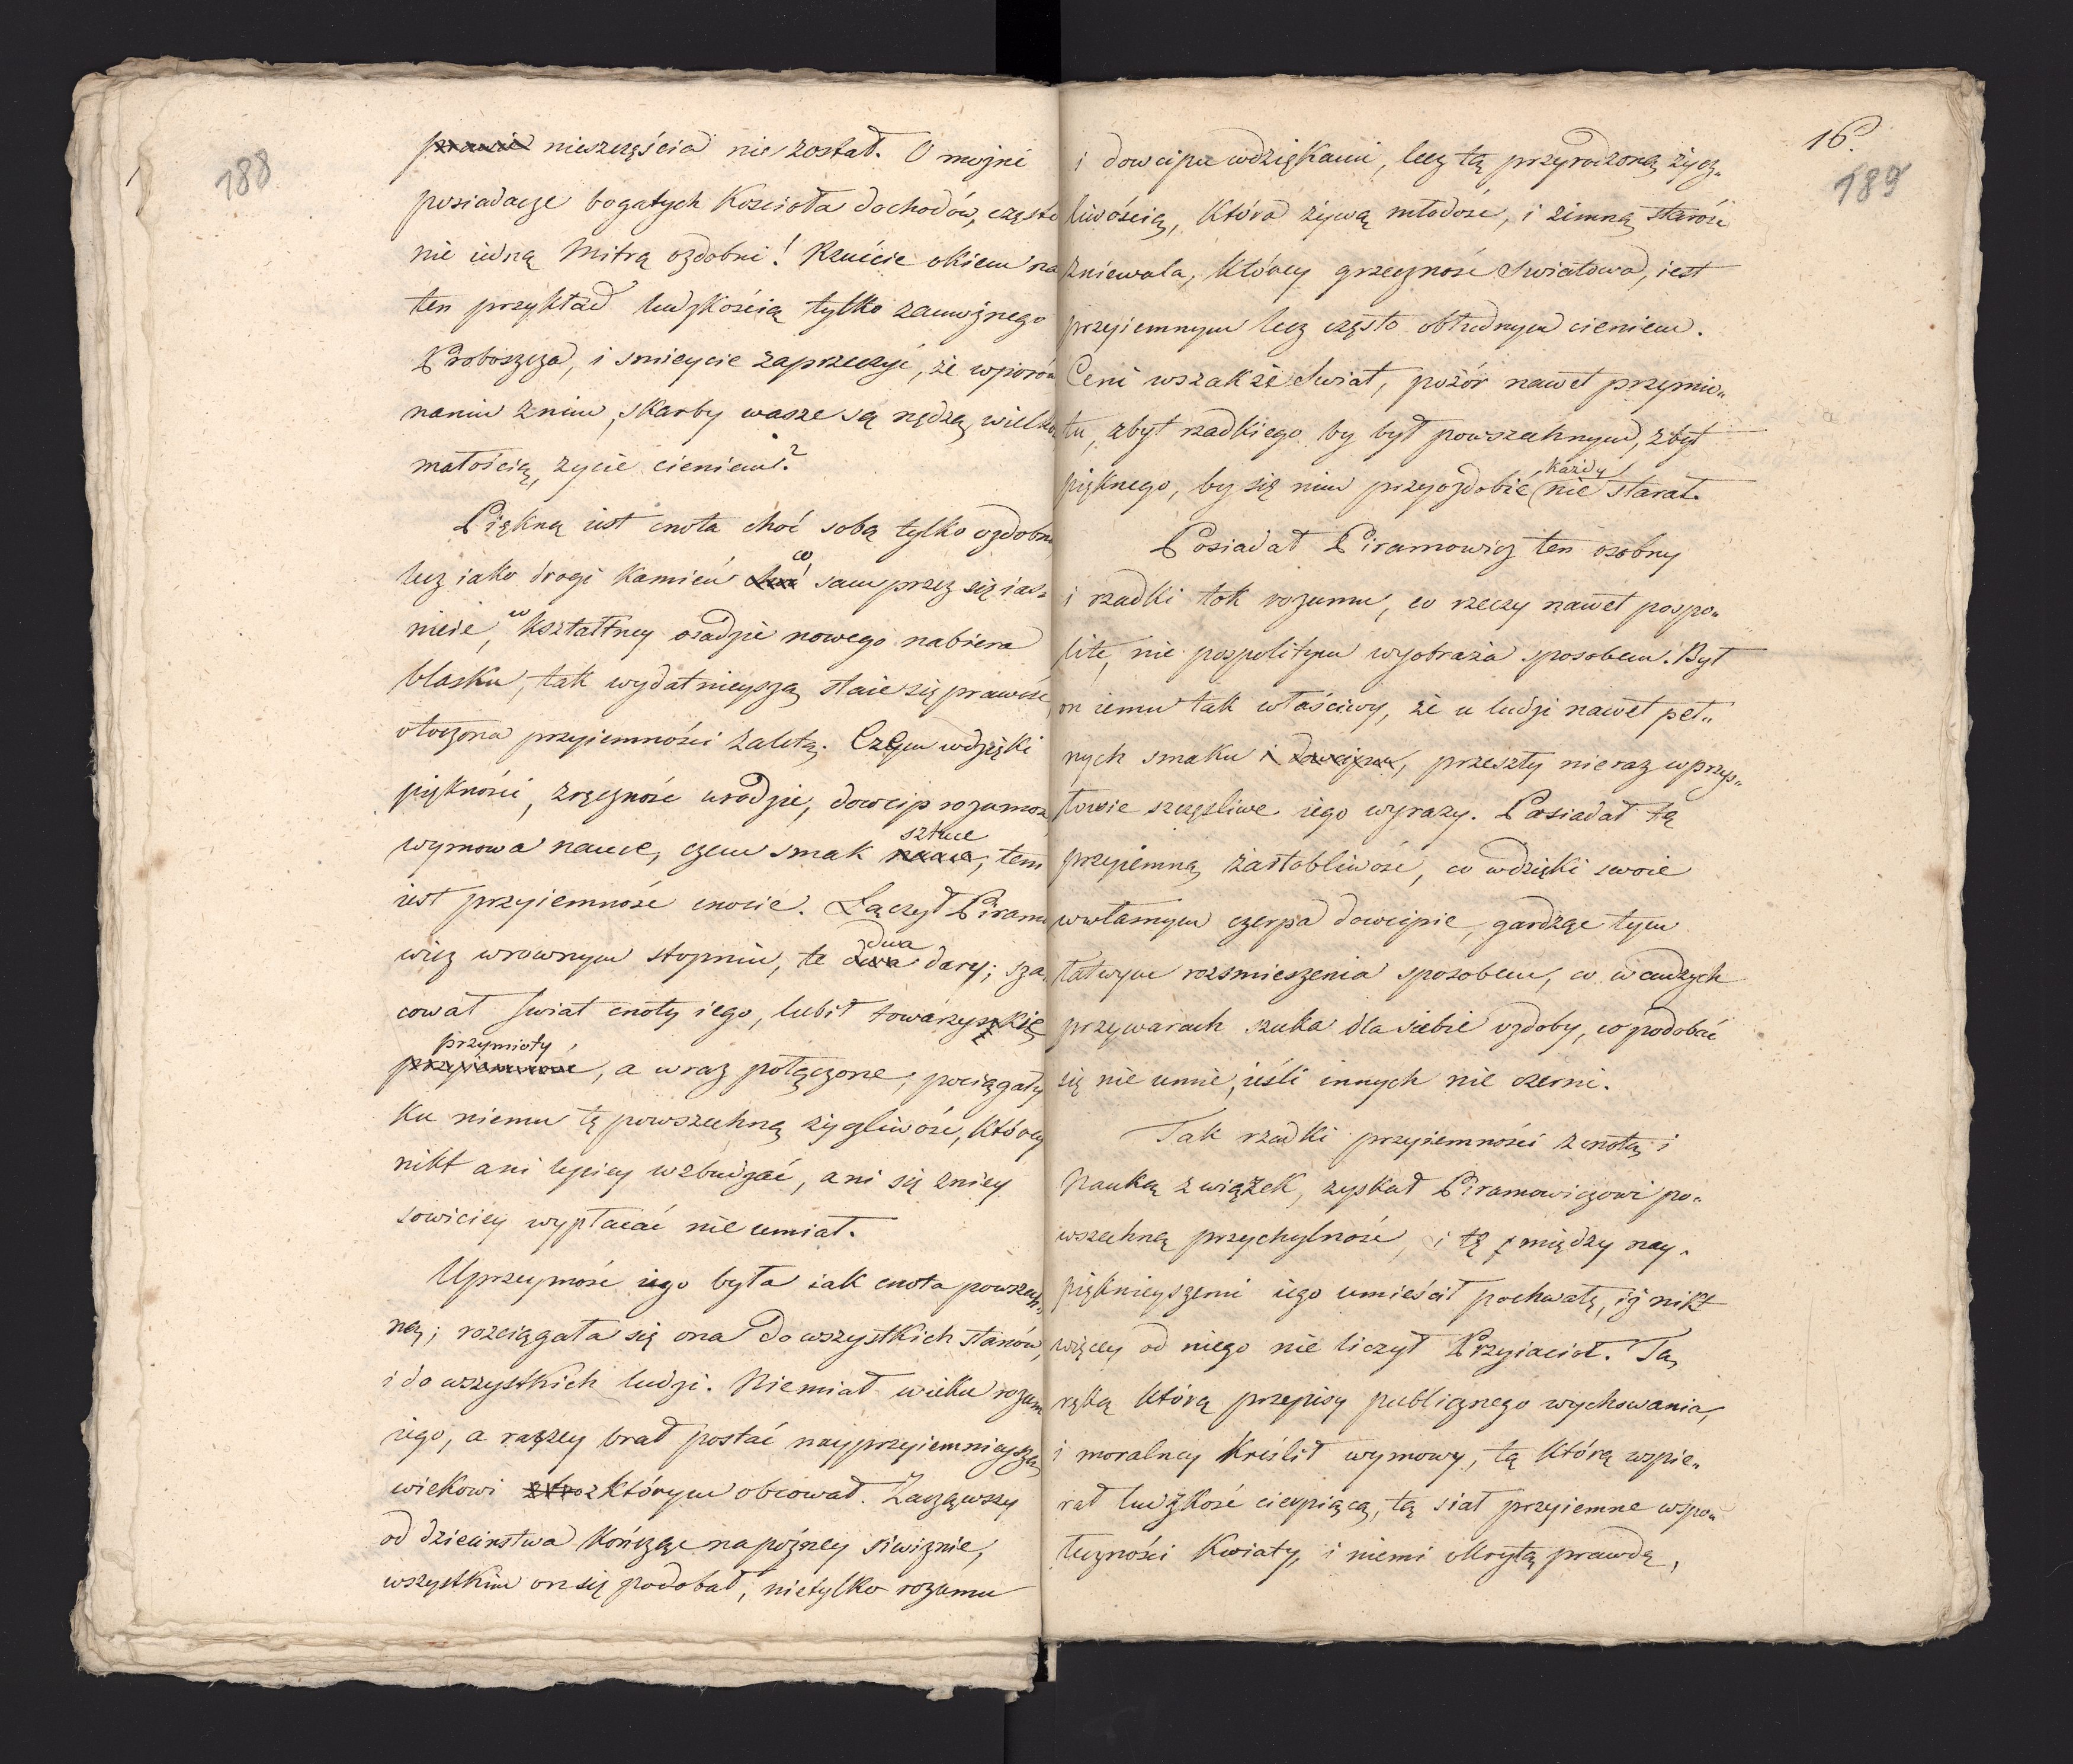 188
prawie nieszczęścia nie został. O możni
posiadacze bogatych Kościoła dochodów, często
nie iedną Mitrą ozdobni! Rzućcie okiem na
ten przykład ludzkością tylko zamożnego
Proboszcza, i smieycie zaprzeczyć, że wporów
naniu znim, skarby wasze są nędzą, wielkość
małością, życie cieniem?
Piękną iest cnota choć sobą tylko ozdobna
lecz iako drogi Kamień co sam przez się iaś-
nieie, w kształtney osádzie nowego nabiera
blasku, tak wydatnieyszą staie się prawość
otoczona przyiemności zaletą. Czem wdzięki
piękności, zręczność urodzie, dowcip rozumowi
wymowa nauce, czem smak sztuce, tem
iest przyiemność cnocie. Łączył Piramo
wicz wrownym stopniu, te dwa dary; sza-
cował swiat cnoty iego, lubił towárzyskie
przymioty
przyiemność, a wraz połączone, pociągały
Ku niemu tę powszechną życzliwość, Którey
nikt ani lepiey wzbudzać, ani się zniey
sowiciey wypłacać nie umiał.
Uprzeymość iego była iak cnota powszech-
ną; rozciągała się ona do wszystkich stanów,
i do wszystkich ludzi. Niemiał wieku rozum
iego, a raczey brał postać nayprzyiemnieyszą
wiekowi z Którym obcował. Zacząwszy
od dzieciństwa Kończąc na poźney siwiznie,
wszystkim on się podobał, nietylko rozumu
16.
189
i dowcipu wdziękami, lecz tą przyrodzoną życz-
liwością, Która żywą młodość, i zimną starość
zniewala, Którey grzeczność swiatowa, iest
przyiemnym lecz często obłudnym cieniem.
Ceni wszakże Swiat, pozór nawet przymio-
tu, zbyt rzadkiego by był powszechnym, zbyt
pięknego, by się nim przyozdobić każdy nie starał.
Posiadał Piramowicz ten osobny
i rzadki tok rozumu, co rzeczy nawet pospo-
lite, nie pospolitym wyobraża sposobem. Był
on iemu tak właściwy, że u ludzi nawet peł-
nych smaku i dowcipu, przeszły nieraz wprzys-
łowie szczęśliwe iego wyrazy. Posiadał tę
przyiemną żartobliwość, co wdzięki swoie
wwłasnym czerpa dowcipie, gardząc tym
łatwym rozsmieszenia sposobem, co w cudzych
przywarach szuka dla siebie ozdoby, co podobać
się nie umie, ieśli innych nie czerni.
Tak rzadki przyiemności z cnotą i
Nauką związek, zyskał Piramowiczowi po-
wszechną przychylność, i tę między nay-
pięknieyszemi iego umieścił pochwałę, iż nikt
więcey od niego nie liczył Przyiacioł. Tą
ręką którą przepisy publicznego wychowania,
i moralney Kreślił wymowy, tą Którą wspie-
rał ludzkość cierpiącą, tą siał przyiemne wspo-
łeczności Kwiaty, i niemi okrytą prawdę,